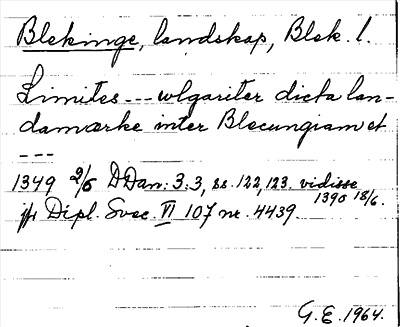 Blekinge, landskap, Blek. l.
Limites --- wlgariter dicta lan-
damærke inter Blecungiam et
---
1349 2/5 DDan: 3:3, ss. 122, 123. vidisse
1390 18/6.
jfr Dipl. Svec. VI 107 nr. 4439.
G.E. 1964.